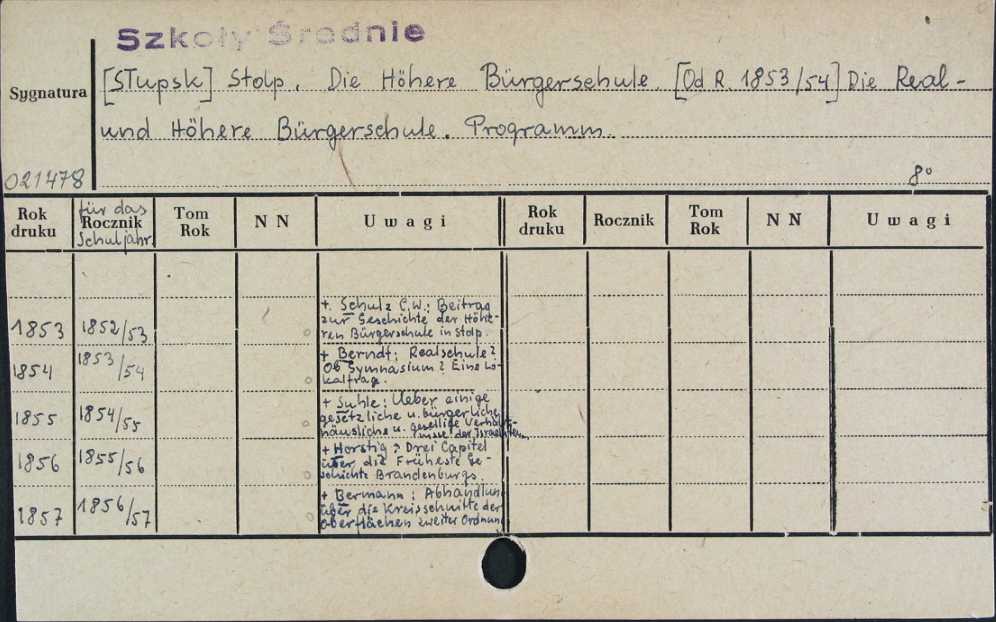 Szkoły Średnie
Sygnatura
[Słupsk] Stolp. Die Höhere Bürgerschule. [Od R. 1853/54] Die Real-
und Höhere Bürgerschule. Programm.
021478
8°
Rok druku
für das Rocznik Schuljahr
Tom Rok
N N
Uwagi
Rok druku
Rocznik
Tom Rok
N N
Uwagi
1853 1852/53
+ Schulz C.W.: Beitrag
zur Geschichte der Höhe-
ren Bürgerschule in Stolp.
1854 1853/54
+ Berndt: Realschule?
Ob Gymnasium? Eine Lo-
kalfrage.
1855 1854/55
+ Suhle: Ueber einige
gesetzliche u. bürgerliche
häusliche u. gesellige Verhält-
nisse der Israeliten.
1856 1855/56
+ Horstig: Drei Capitel
über die Früheste Ge-
schichte Brandenburgs.
1857 1856/57
+ Bermann: Abhandlun
über die Kreisschnitte der
Oberflächen zweiter Ordnun